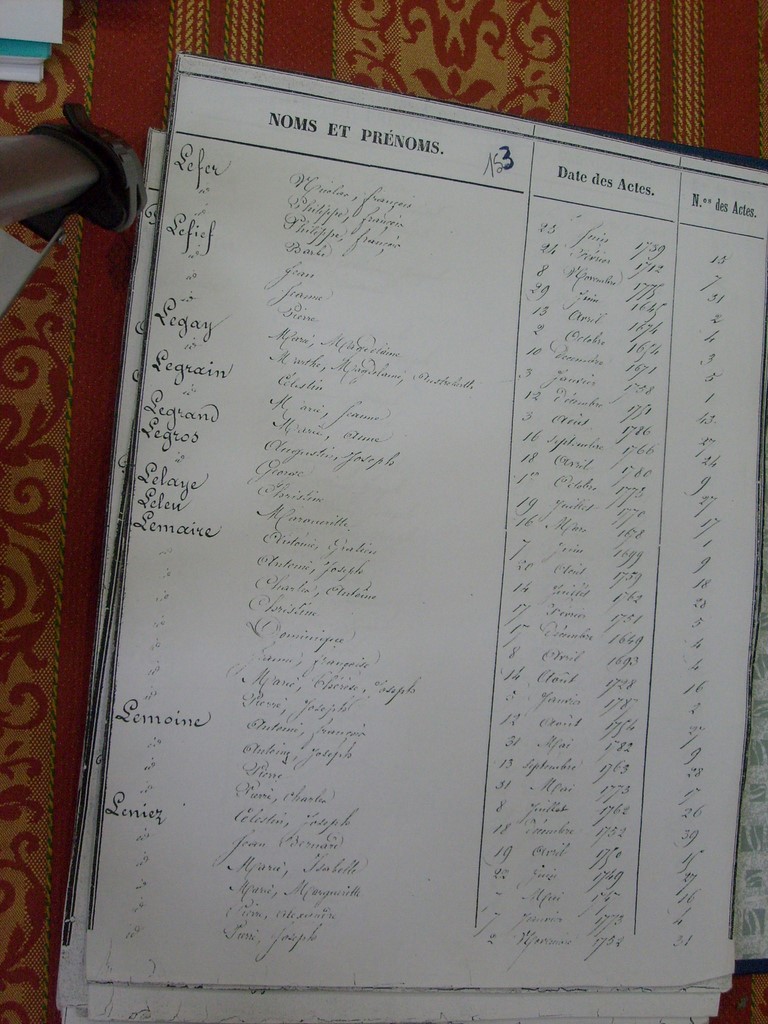 NOMS ET PRÉNOMS. 153 Date des Actes. N.os des Actes.
Lefer Nicolas, françois 23 Juin 1739 15
id Philippe, françois 24 Février 1712 7
id Philippe, françois 8 Novembre 1775 31
Lefief Barbe 29 Juin 1645 2
id Jean 13 Avril 1674 4
id Jeanne 2 Octobre 1654 3
id Pierre 10 Décembre 1671 5
Legay Marie, Magdelaine 3 Janvier 1738 1
id Marthe, Magdelaine, Austreberthe 12 Décembre 1751 43
Legrain Célestin 3 Août 1786 27
id Marie, Jeanne 16 Septembre 1766 24
Legrand Marie, Anne 18 Avril 1780 9
Legros Augustin, Joseph 1er Octobre 1773 27
id George 19 Juillet 1778 17
Lelaye Christine 16 Mars 1678 1
Leleu Marguerite 7 Juin 1699 9
Lemaire Antoine, Gratien 20 Août 1759 18
id Antoine, Joseph 14 Juillet 1762 28
id Charles, Antoine 17 Février 1751 5
id Christine 17 Décembre 1649 4
id Dominique 8 Avril 1693 4
id Jeanne, françoise 14 Août 1728 16
id Marie, Thérèse, Joseph 5 Janvier 1787 2
id Pierre, Joseph 12 Août 1754 27
Lemoine Antoine, françois 31 Mai 1782 9
id Antoine, Joseph 13 Septembre 1763 28
id Pierre 31 Mai 1773 17
id Pierre, Charles 8 Juillet 1762 26
Leniez Célestin, Joseph 18 Décembre 1752 39
id Jean Bernard 19 Avril 1750 15
id Marie, Isabelle 22 Juin 1749 27
id Marie, Marguerite Mai 16
id Pierre, Alexandre 7 Janvier 1773 4
id Pierre, Joseph 2 Novembre 1752 31